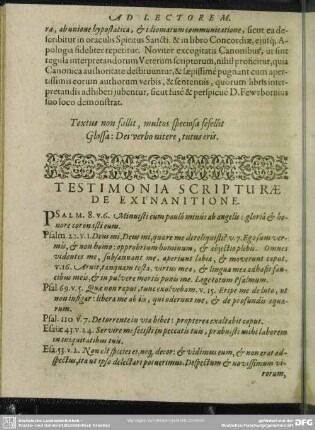 AD LECTOREM.
ra, ab unione hypostatica, & idiomatum communicatione, sicut ea de-
scribitur in oraculis Spiritus Sancti, & in libro Concordiæ, ejusq; A-
pologia fideliter repetitur. Noviter excogitatis Canonibus, ut sint
regula interpretandorum Veterum scriptorum, nihil proficitur, quia
Canonica authoritate destituuntur, & sæpissime pugnant cum aper-
tissimis eorum authorum verbis, & sententiis, quorum libris inter-
pretandis adhiberi jubentur, sicut hasc & perspicuè D. Fewrbornius
suo loco demonstrat.
Textus non fallit, multos speciosa fefellit
Glossa: Dei verbo nitere, tutus eris.
TESTIMONIA SCRIPTURÆ
DE EXINANITIONE.
PSALM. 8. v. 6. Minuisti eum paulò minùs ab angelis: gloriâ & ho-
nore coronasti eum.
Psalm 22. v. 1. Deus mi, Deus mi, quare me dereliquisti? v. 7. Ego sum ver-
mis, & non homo: opprobrium hominum, & abjectio plebis. Omnes
videntes me, subsannant me, aperiunt labia, & moverunt caput.
v. 16. Aruit, tanquam testa, virtus mea, & lingua mea adhæsit fau-
cibus meis, & in pulvere mortis ponis me. Lege totum Psalmum.
Psal 69. v. 5. Quæ non rapui, tunc exolvebam. v. 15. Eripe me de luto, ut
non infigar: libera me ab iis, qui oderunt me, & de profundis aqua-
rum.
Psal. 110 v. 7. De torrente in via bibet: propterea exaltabit caput.
Esaiæ 43. v. 24. Servire me fecisti in peccatis tuis, præbuisti mihi laborem
in iniquitatibus tuis.
Esa. 53. v. 2. Non est species ei, neq; decor: & vidimus eum, & non erat ad-
spectus, ita ut ipso delectari potuerimus. Despectum & novissimum vi-
rorum,